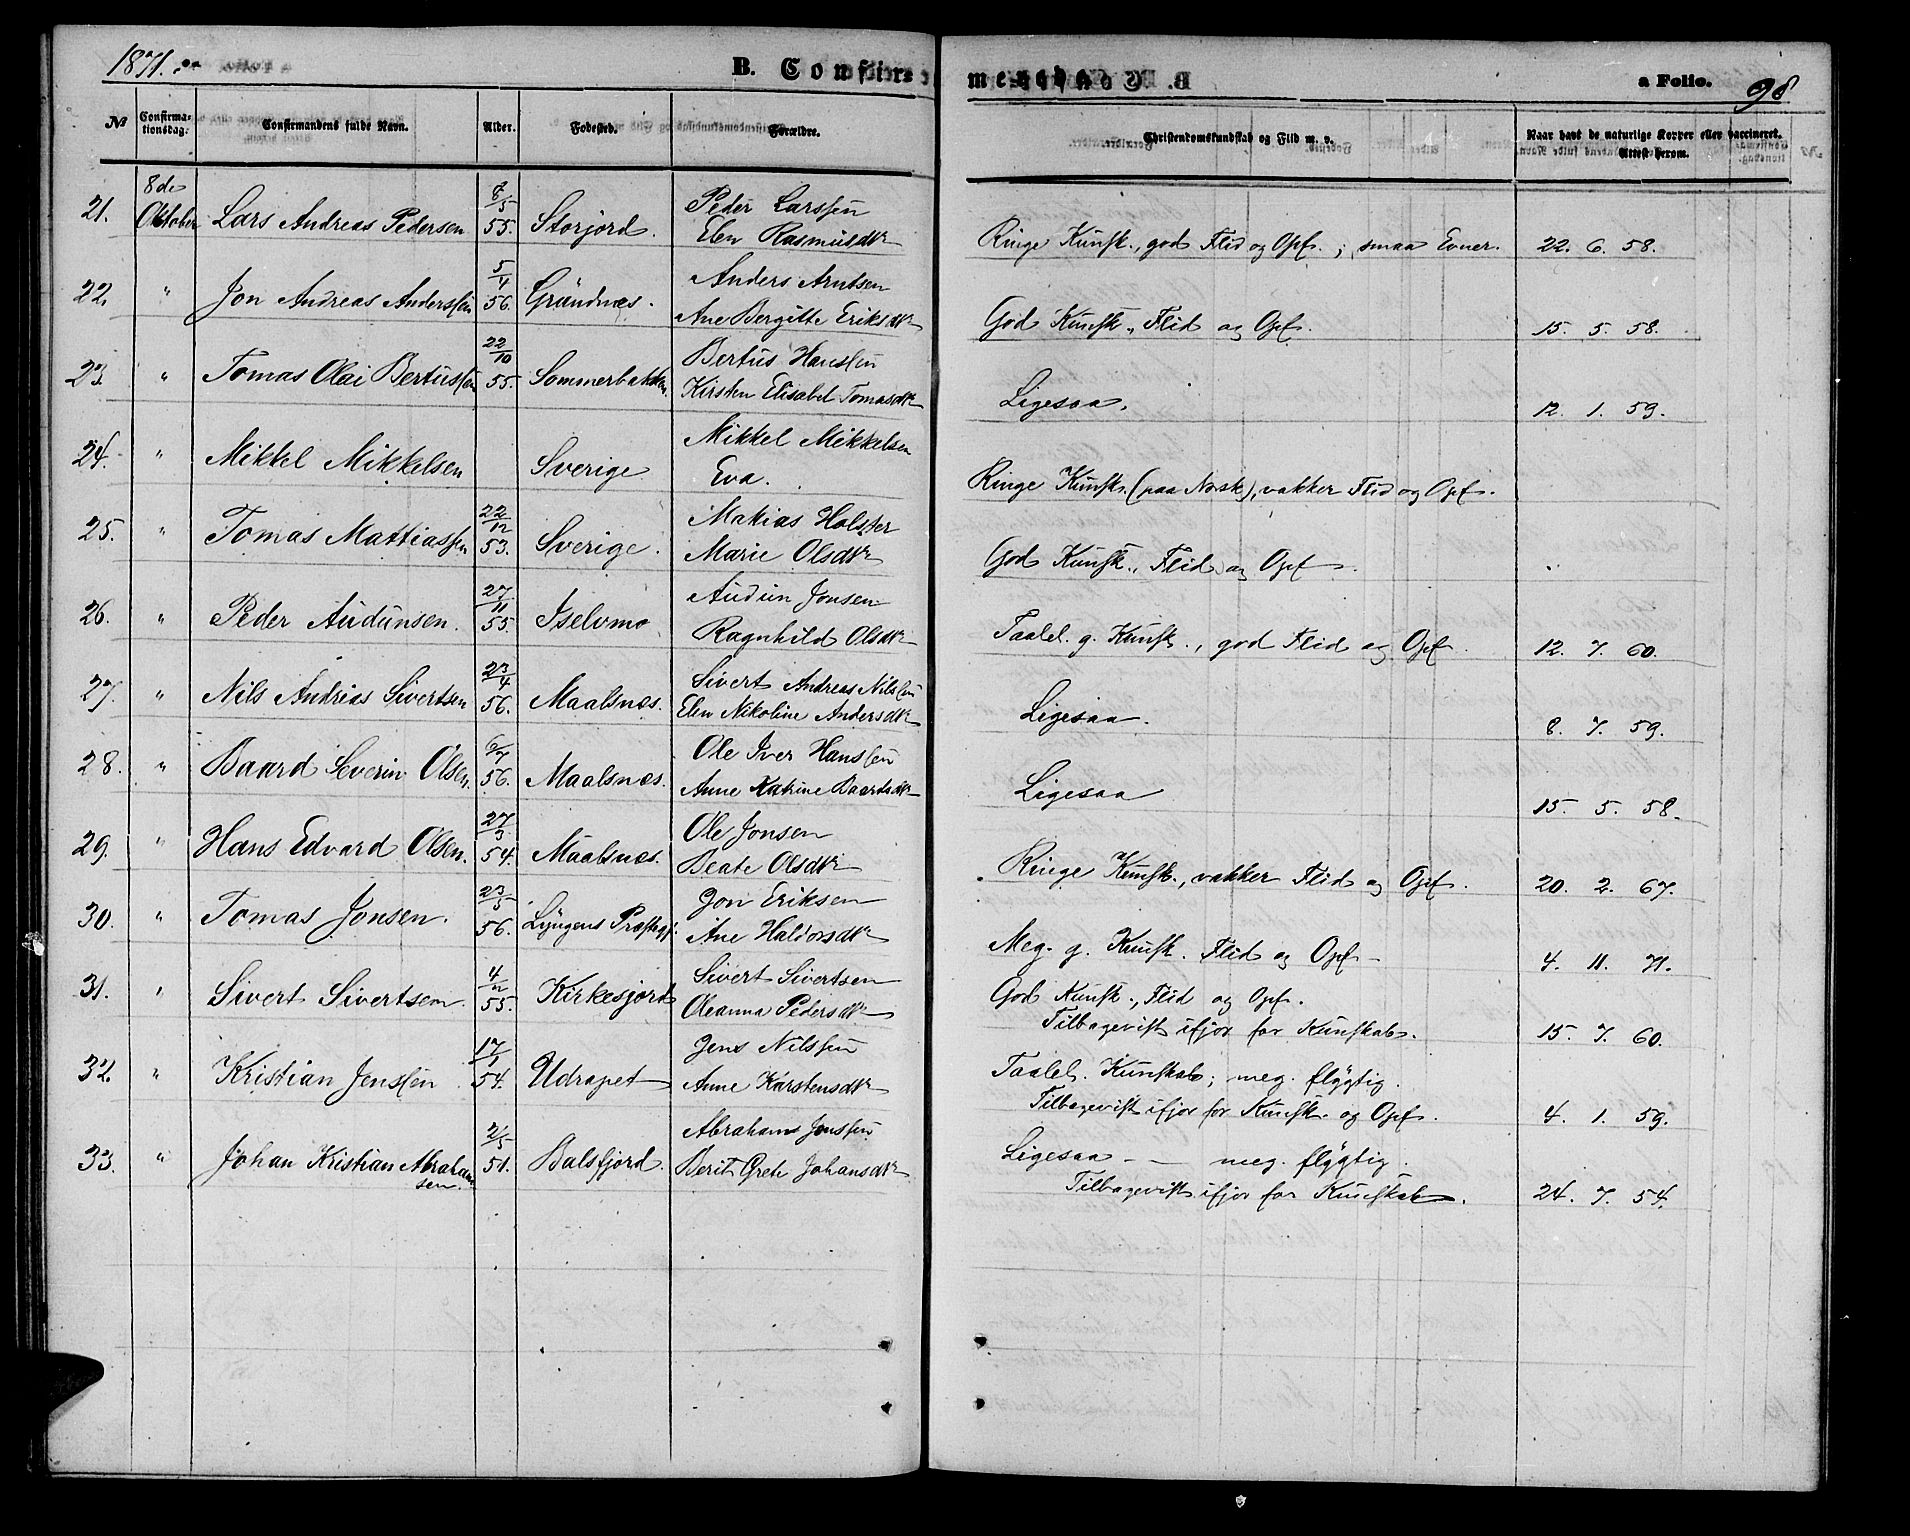 1871.
B. Confir
merede.
a Folio. 98
No
Confirmationsdag.
Confirmandens fulde Navn.
Alder.
Fødested.
Forældre.
Christendomskundskab og Flid m. v.
Naar havt de naturlige Kopper eller vaccineret. Attest herom.
21. 8de Oktober Lars Andreas Pedersen 8/5 55. Storjord. Peder Larssen Elen Rasmusdtr Ringe Kunsk., god Flid og Opf.; smaa Evner. 22. 6. 58.
22. " Jon Andreas Anderssen 5/4 56. Grundnæs. Anders Arntsen Ane Bergitte Eriksdtr God Kunsk., Flid og Opf. 15. 5. 58.
23. " Tomas Olai Bertussen 22/10 55. Sommerbakken. Bertus Hanssen Kirsten Elisabet Tomasdtr Ligesaa. 12. 1. 59.
24. " Mikkel Mikkelsen Sverige Mikkel Mikkelsen Eva. Ringe Kunsk. (paa Norsk), vakker Flid og Opf.
25. " Tomas Mattiassen 22/12 53. Sverige. Matias Holster Marie Olsdtr God Kunsk., Flid og Opf.
26. " Peder Audunsen. 27/11 55. Iselvmo Audun Jonsen Ragnhild Olsdtr Taalel. g. Kunsk., god Flid og Opf. 12. 7. 60.
27. " Nils Andreas Sivertsen 23/4 56. Maalsnæs. Sivert Andreas Nilssen Elen Nikoline Andersdtr Ligesaa. 8. 7. 59.
28. " Baard Severin Olsen. 6/7 56. Maalsnæs. Ole Iver Hanssen Anne Katrine Baardsdtr Ligesaa 15. 5. 58.
29. " Hans Edvard Olsen. 27/3 54. Maalsnæs. Ole Jonsen Beate Olsdtr Ringe Kunsk., vakker Flid og Opf. 20. 2. 67.
30. " Tomas Jonsen. 23/5 56. Lyngens Præstegj. Jon Eriksen Ane Haldorsdtr Meg. g. Kunsk. Flid og Opf. 4. 11. 71.
31. " Sivert Sivertsen. 4/2 55. Kirkesjord Sivert Sivertsen Oleanna Pedersdtr God Kunsk., Flid og Opf.
Tilbagevist ifjor for Kunskab. 15. 7. 60.
32. " Kristian Jenssen 17/1 54. Udrapet Jens Nilssen Anne Karstensdtr Taalel. Kunskab; meg. flygtig.
Tilbagevist ifjor for Kunsk. og Opf. 4. 1. 59.
33. " Johan Kristian Abrahamsen. 2/5 51. Balsfjord. Abrahams Jonssen Berit Grete Johansdtr Ligesaa — meg. flygtig.
Tilbagevist ifjor for Kunskab. 24. 7. 54.